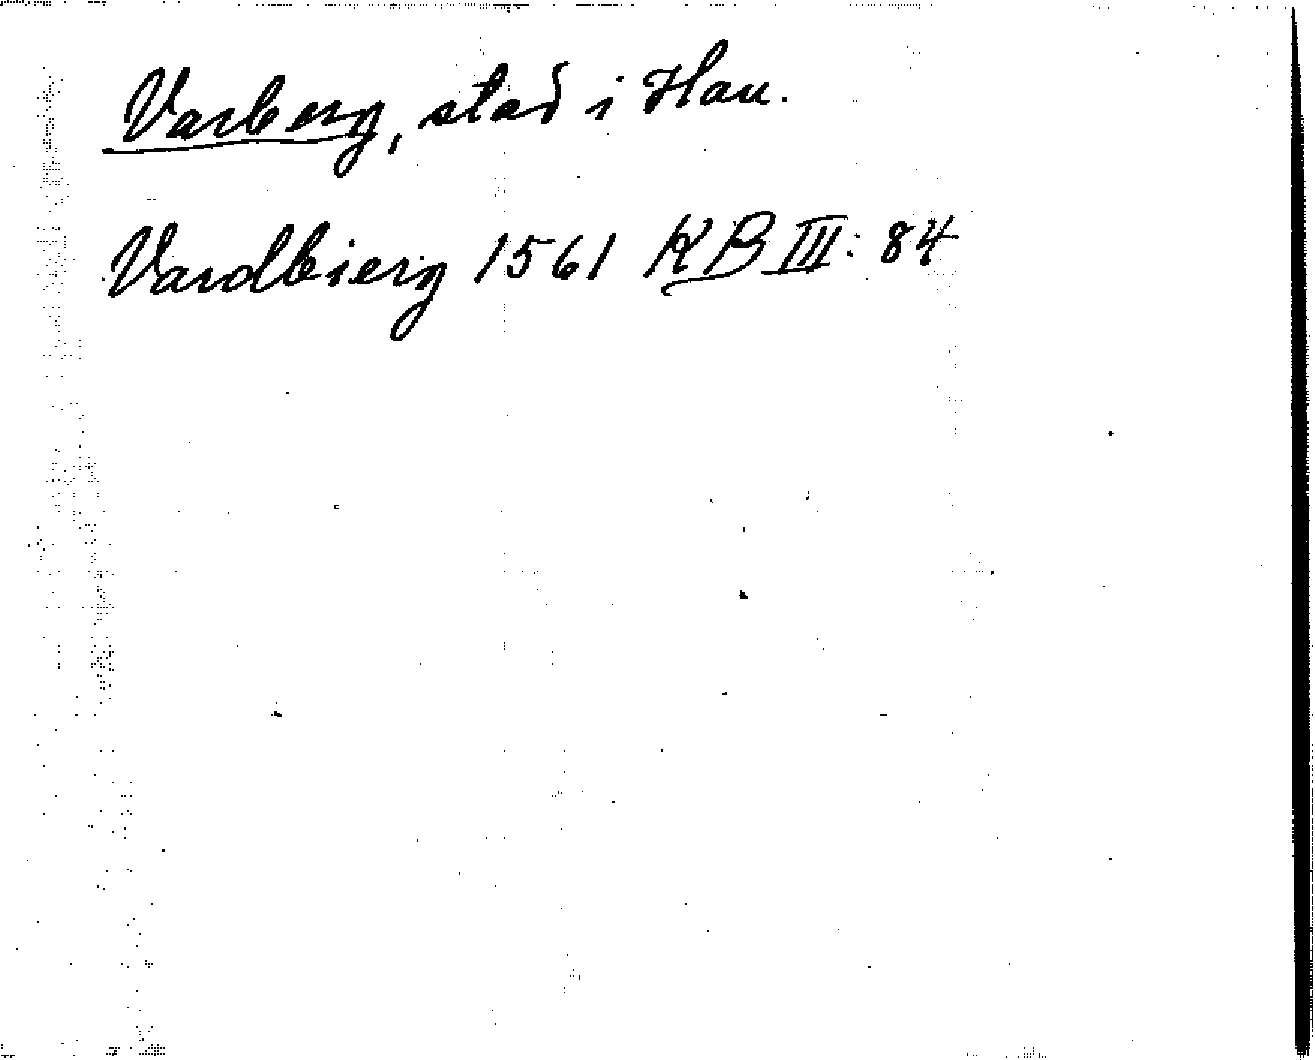 Varberg, stad i Hall.
Vardbierg 1561 KB III: 84